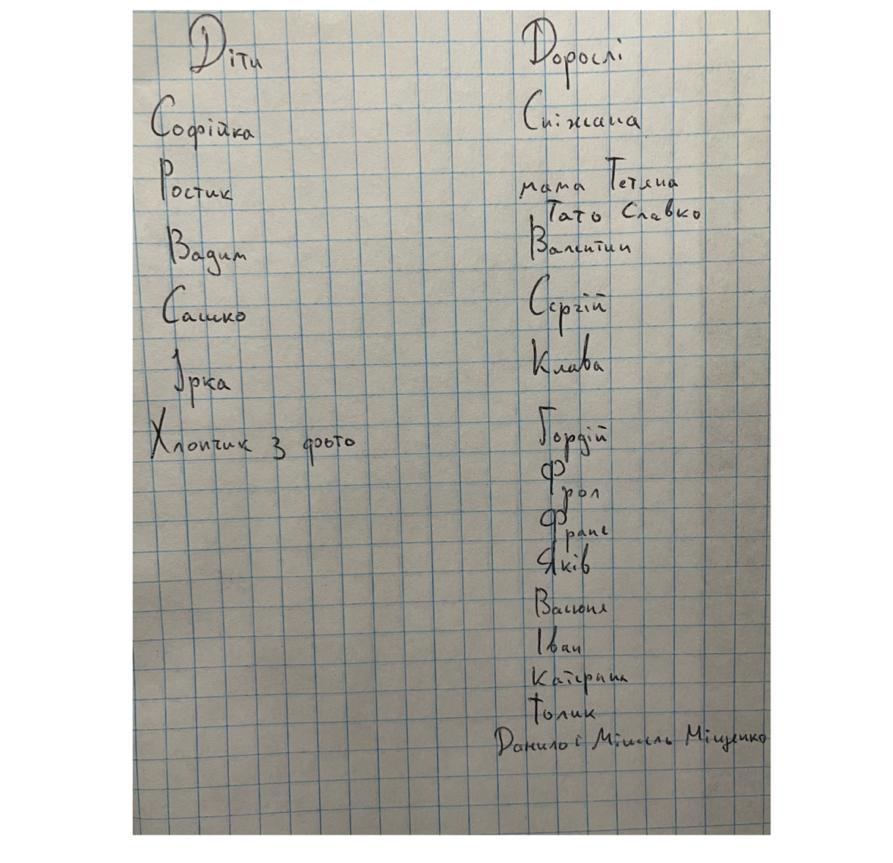 Діти
Софійка
Ростик
Вадим
Сашко
Ірка
Хлопчик з фото
Дорослі
Сніжана
мама Тетяна
Тато Славко
Валентин
Сергій
Клава
Гордій
Фрол
Франс
Яків
Васюня
Іван
Катерина
Толик
Данило і Мішель Міщенко